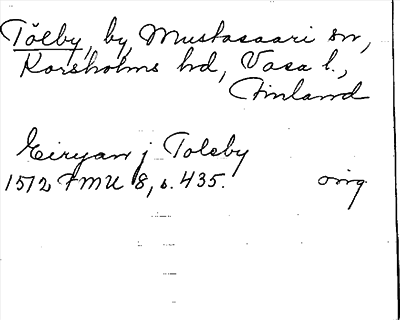 Tölby, by, Mustasaari sn,
Korsholms hd, Vasa l.,
Finland
Eiryan j Toleby
1512 FMU 8, s. 435. orig